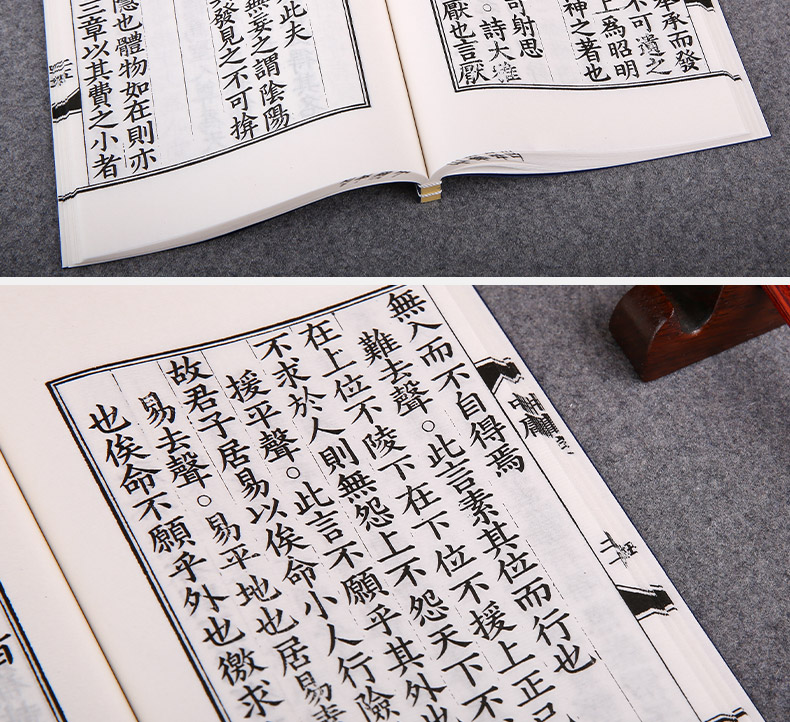 承而發
不可遺之
上爲昭明
神之著也
可射思
。詩大雅
厭也言厭
此夫
無妄之謂陰陽
發見之不可揜
隱也體物如在則亦
三章以其費之小者
無入而不自得焉
難去聲。此言素其位而行也
在上位不陵下在下位不援上正己
不求於人則無怨上不怨天下不
援平聲。此言不願乎其外也
故君子居易以俟命小人行險
易去聲。易平地也居易素
也俟命不願乎外也徼求